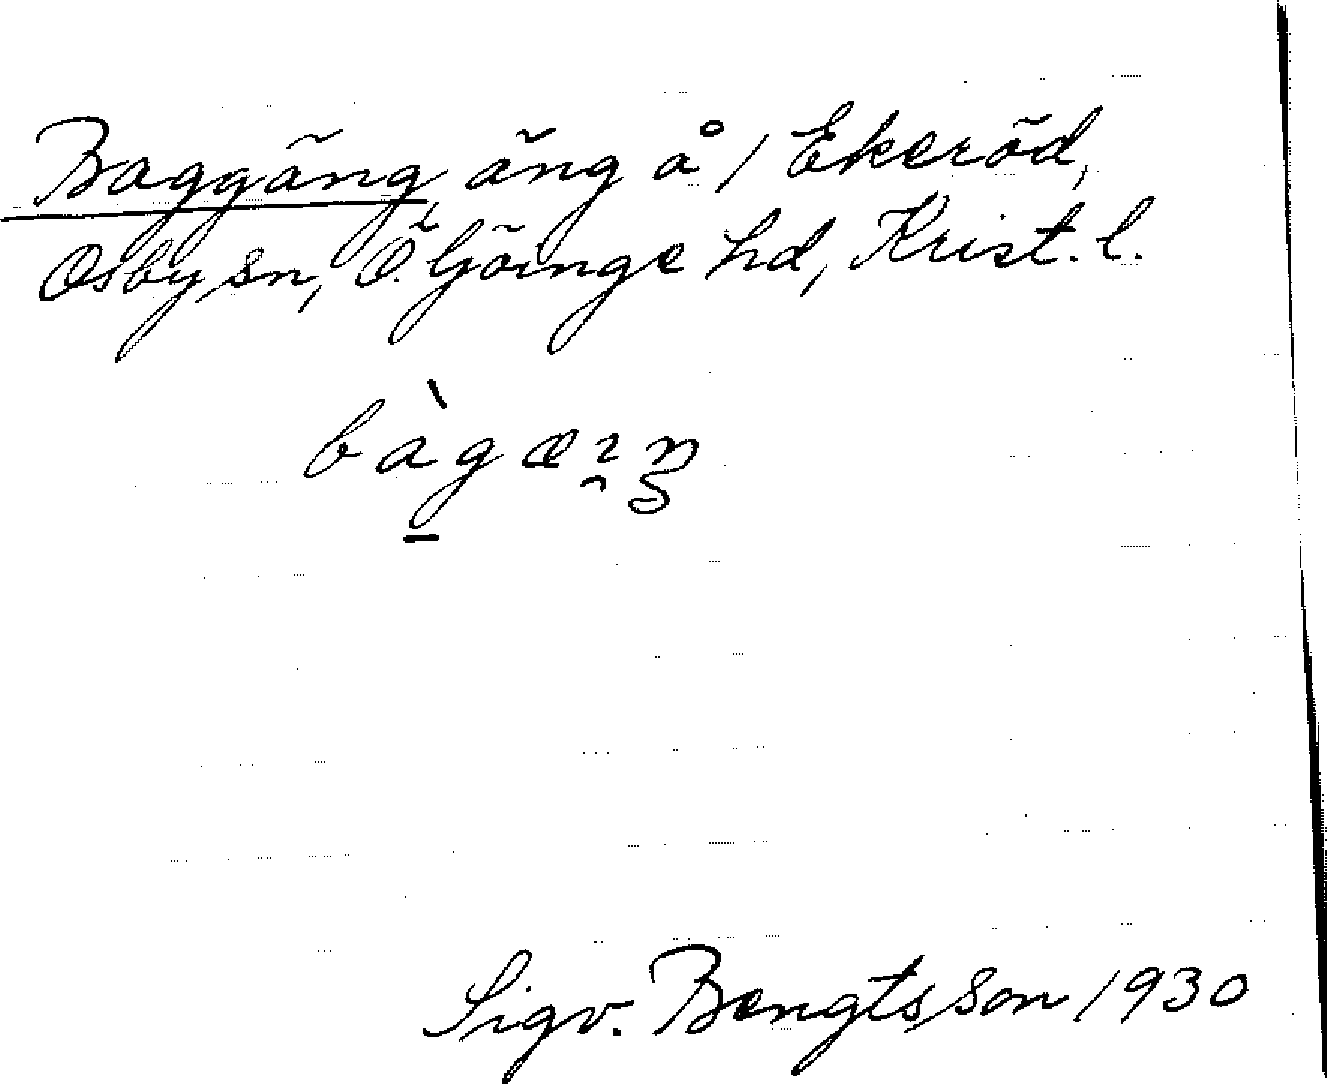 Baggäng, äng å 1 Ekeröd,
Osby sn, Ö. Göinge hd, Krist. l.
Sigv. Bengtsson 1930